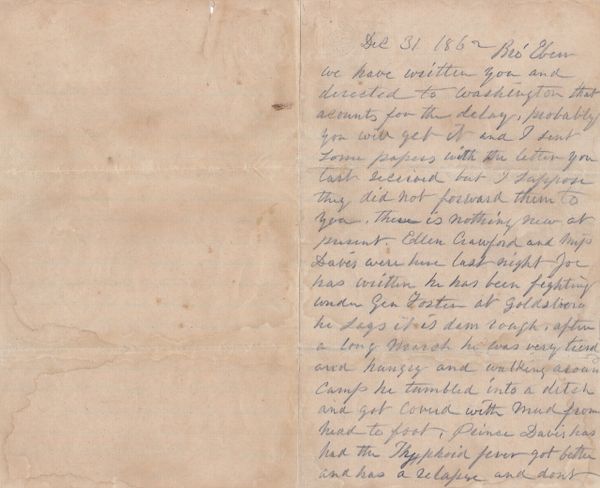 Dec 31 1862 Bro' Eben
we have written you and
directed to Washington that
acounts for the delay, probably
you will get it and I sent
some papers with the letter you
last received but I suppose
they did not forward them to
you, there is nothing new at
present. Ellen Crawford and Miss
Davis were here last night Joe
has written he has been fighting
under Gen Foster at Goldsboro
he says it is dam rough, after
a long March he was very tired
and hungry and walking aroun
Camp he tumbled into a ditch
and got Coverd with Mud from
head to foot, Prince Davis has
had the Thyphoid fever got better
and has a relapse and dont